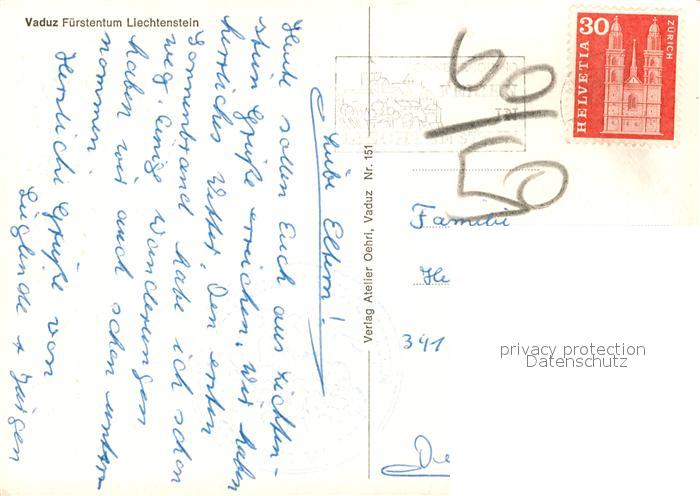 Vaduz Fürstentum Liechtenstein
Liebe Eltern!
Heute sollen Euch aus Lichten-
stein Grüße erreichen. Wir haben
herrliches Wetter. Den ersten
Sonnenbrand habe ich schon
weg. Einige Wanderungen
haben wir auch schon unter-
nommen.
Herzliche Grüße von
Sieglinde + Jürgen
Verlag Atelier Oehri, Vaduz Nr. 151
60
50
30
HELVETIA
ZÜRICH
Familie
He
341
privacy protection
Datenschutz